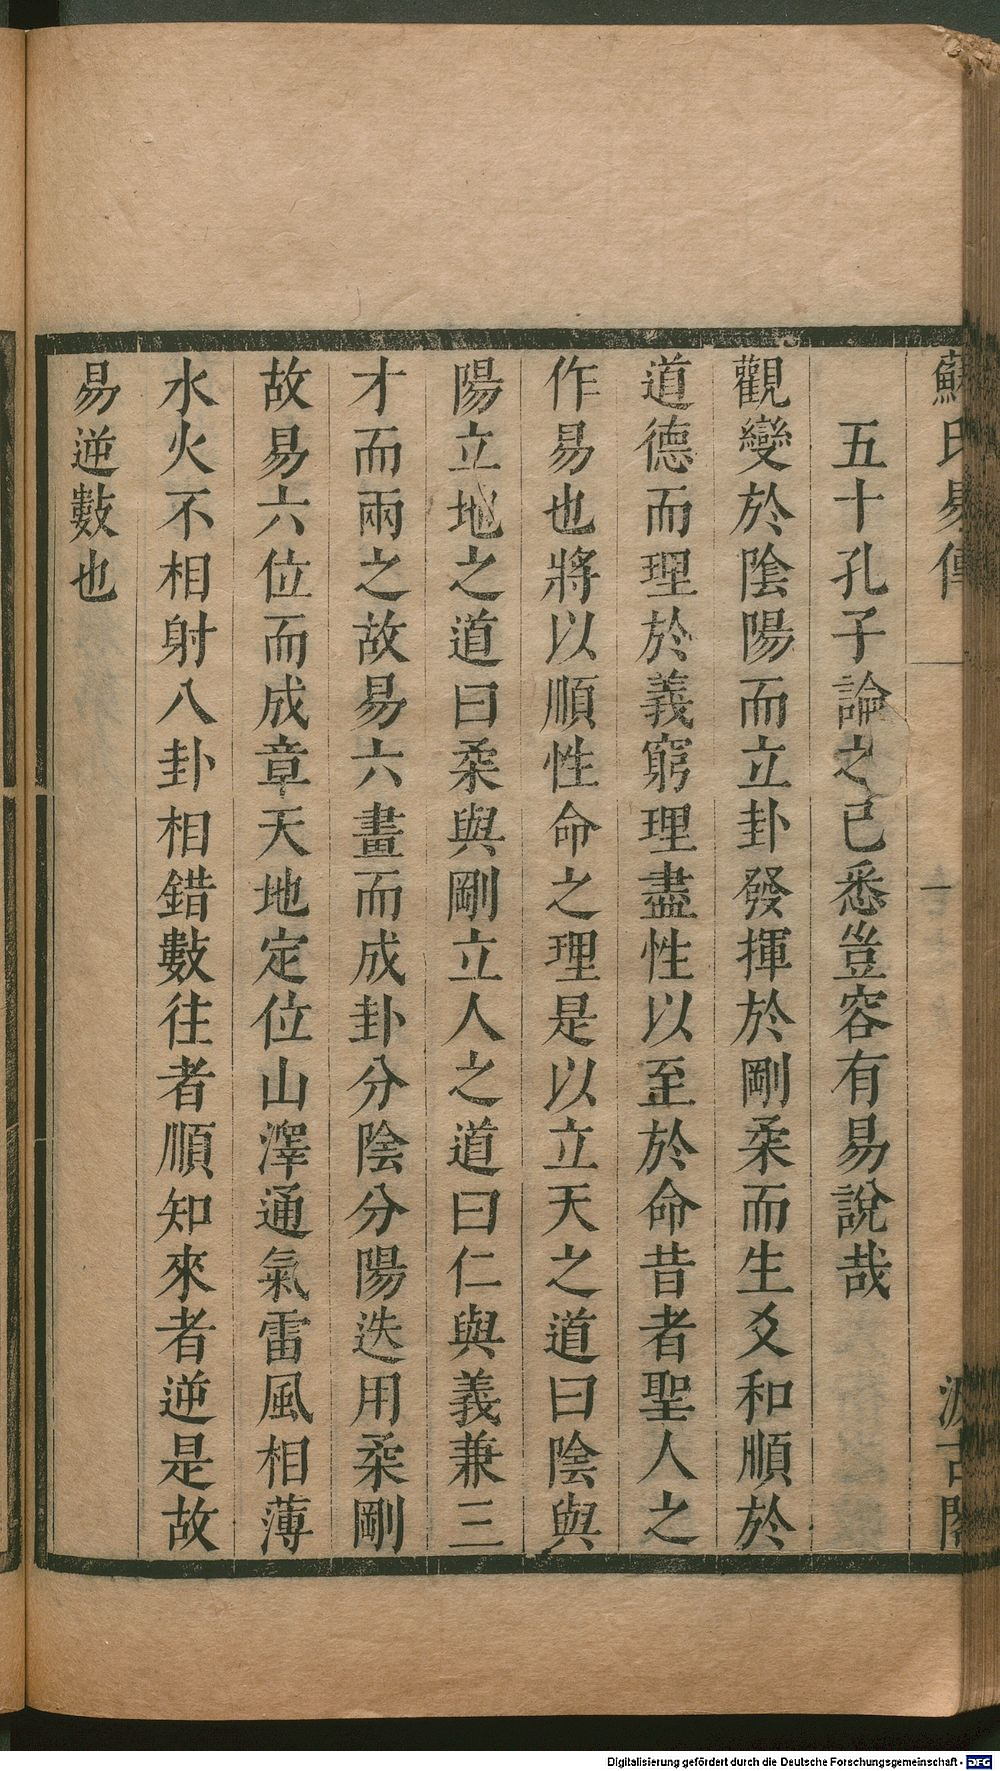 蘇氏易傳 一 汲古閣
五十孔子論之已悉豈容有易說哉
觀變於陰陽而立卦發揮於剛柔而生爻和順於
道德而理於義窮理盡性以至於命昔者聖人之
作易也將以順性命之理是以立天之道曰陰與
陽立地之道曰柔與剛立人之道曰仁與義兼三
才而兩之故易六畫而成卦分陰分陽迭用柔剛
故易六位而成章天地定位山澤通氣雷風相薄
水火不相射八卦相錯數往者順知來者逆是故
易逆數也
Digitalisierung gefördert durch die Deutsche Forschungsgemeinschaft - DFG